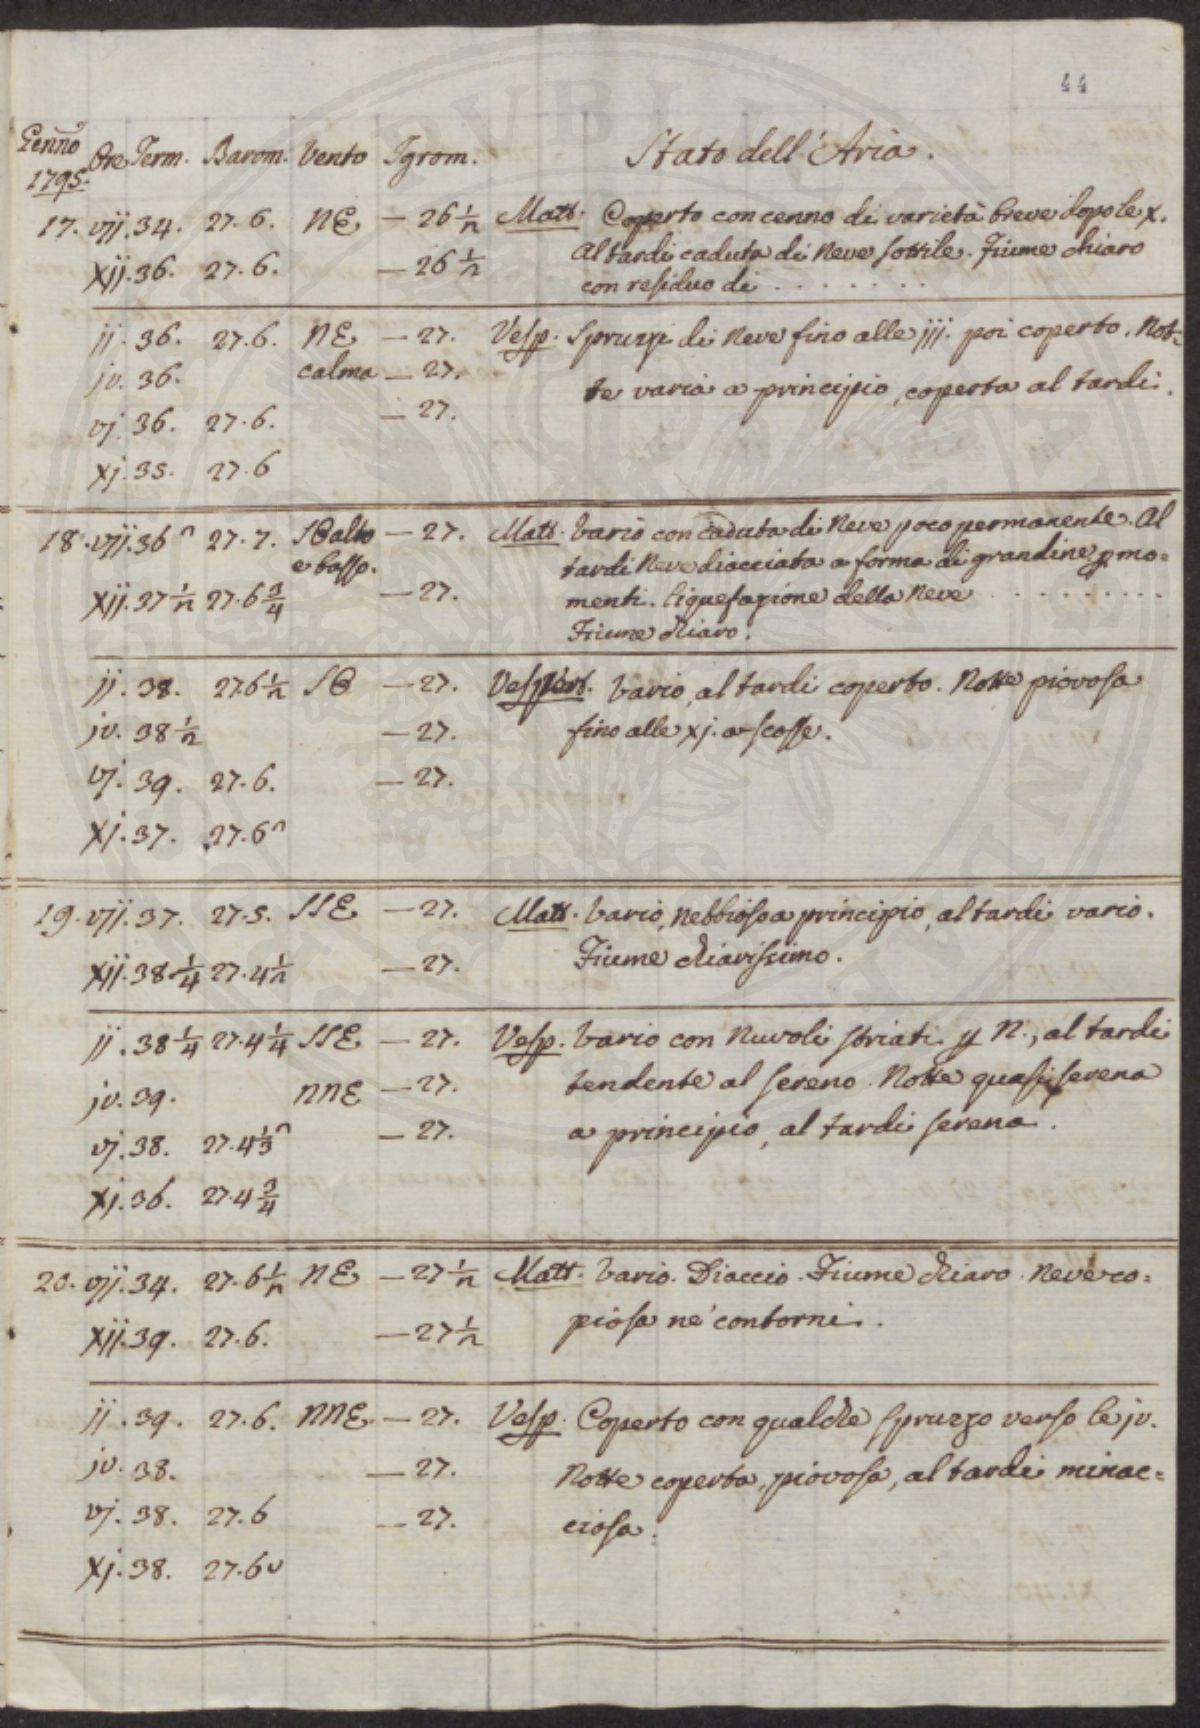 44
Genno
1795.
Ore Term. Barom. Vento Igrom. Stato dell'Aria.
17. vij. 34. 27. 6. NE — 26 1/2 Matt. Coperto con cenno di varietà breve dopo le x.
xij. 36. 27. 6. — 26 1/2 Al tardi caduta di Neve sottile. Fiume chiaro
con residuo di . . . . . . .
ij. 36. 27. 6. NE — 27. Vesp. Spruzzi di Neve fino alle iij. poi coperto. Not-
jv. 36. calma — 27. te varia a principio, coperta al tardi.
vj. 36. 27. 6. — 27.
xj. 35. 27. 6
18. vij. 36 ^ 27. 7. SO alto — 27. Matt. Vario con caduta di Neve poco permanente. Al
e basso. tardi Neve diacciata a forma di grandine p mo=
xij. 37 1/2 27. 6 3/4 — 27. menti. Liquefazione della Neve . . . . . . . . .
Fiume chiaro.
ij. 38. 27.6 1/2 SO — 27. Vespert. Vario, al tardi coperto. Notte piovosa
jv. 38 1/2 — 27. fino alle xj. a scosse.
vj. 39. 27. 6. — 27.
xj. 37. 27. 6 ^
19. vij. 37. 27. 5. SSE — 27. Matt. Vario, nebbioso a principio, al tardi vario.
xij. 38. 1/4 27. 4 1/2 — 27. Fiume chiarissimo.
ij. 38 1/4 27. 4 1/4 SSE — 27. Vesp. Vario con Nuvoli striati p N., al tardi
jv. 39. NNE — 27. tendente al sereno. Notte quasi serena
vj. 38. 27. 4 1/3 ^ — 27. a principio, al tardi serena.
xj. 36. 27. 4 3/4
20. vij. 34. 27. 6 1/2 NE — 27 1/2 Matt. Vario. Diaccio. Fiume chiaro. Neve co=
xij. 39. 27. 6. — 27 1/2 piosa ne' contorni.
ij. 39. 27. 6. NNE. — 27. Vesp. Coperto con qualche spruzzo verso le jv.
jv. 38. — 27. Notte coperta, piovosa, al tardi minac=
vj. 38. 27. 6 — 27. ciosa.
xj. 38. 27. 6 u